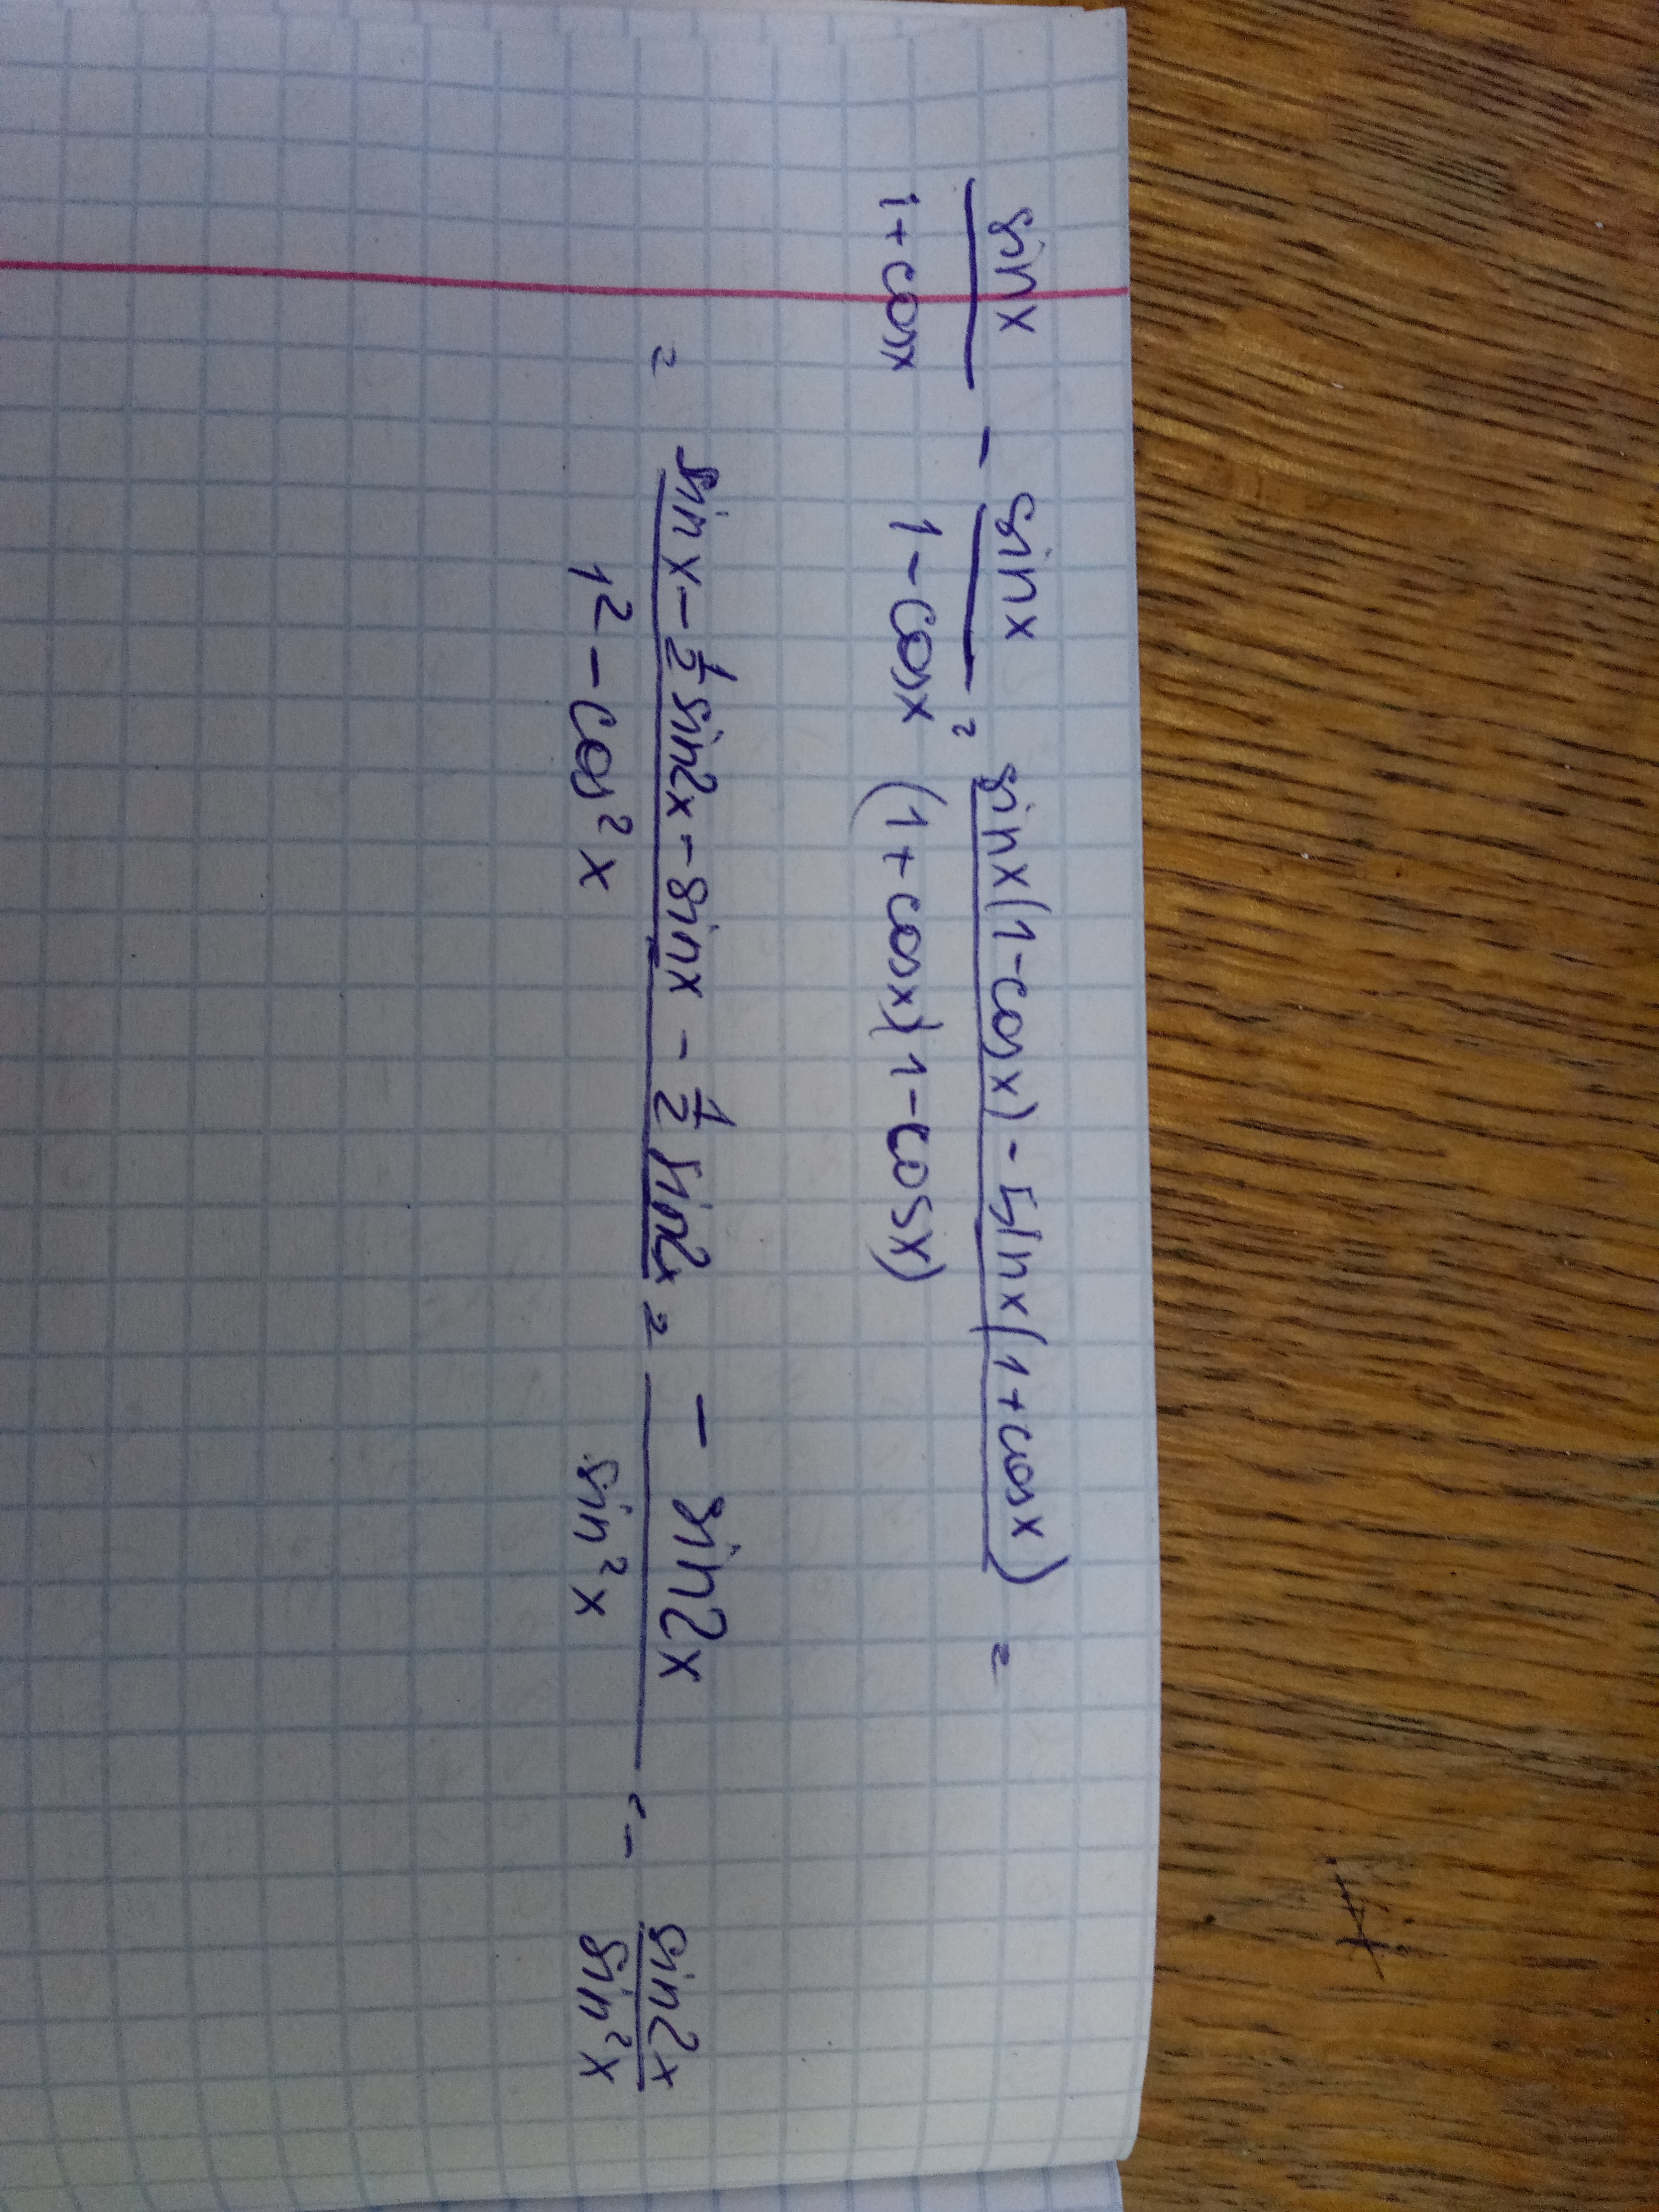 sinx/(1+cosx) - sinx/(1-cosx) = (sinx(1-cosx) - sinx(1+cosx))/((1+cosx)(1-cosx)) =
= (sinx - 1/2 sin2x - sinx - 1/2 sin2x)/(1² - cos²x) = (- sin2x)/(sin²x) = - sin2x/sin²x